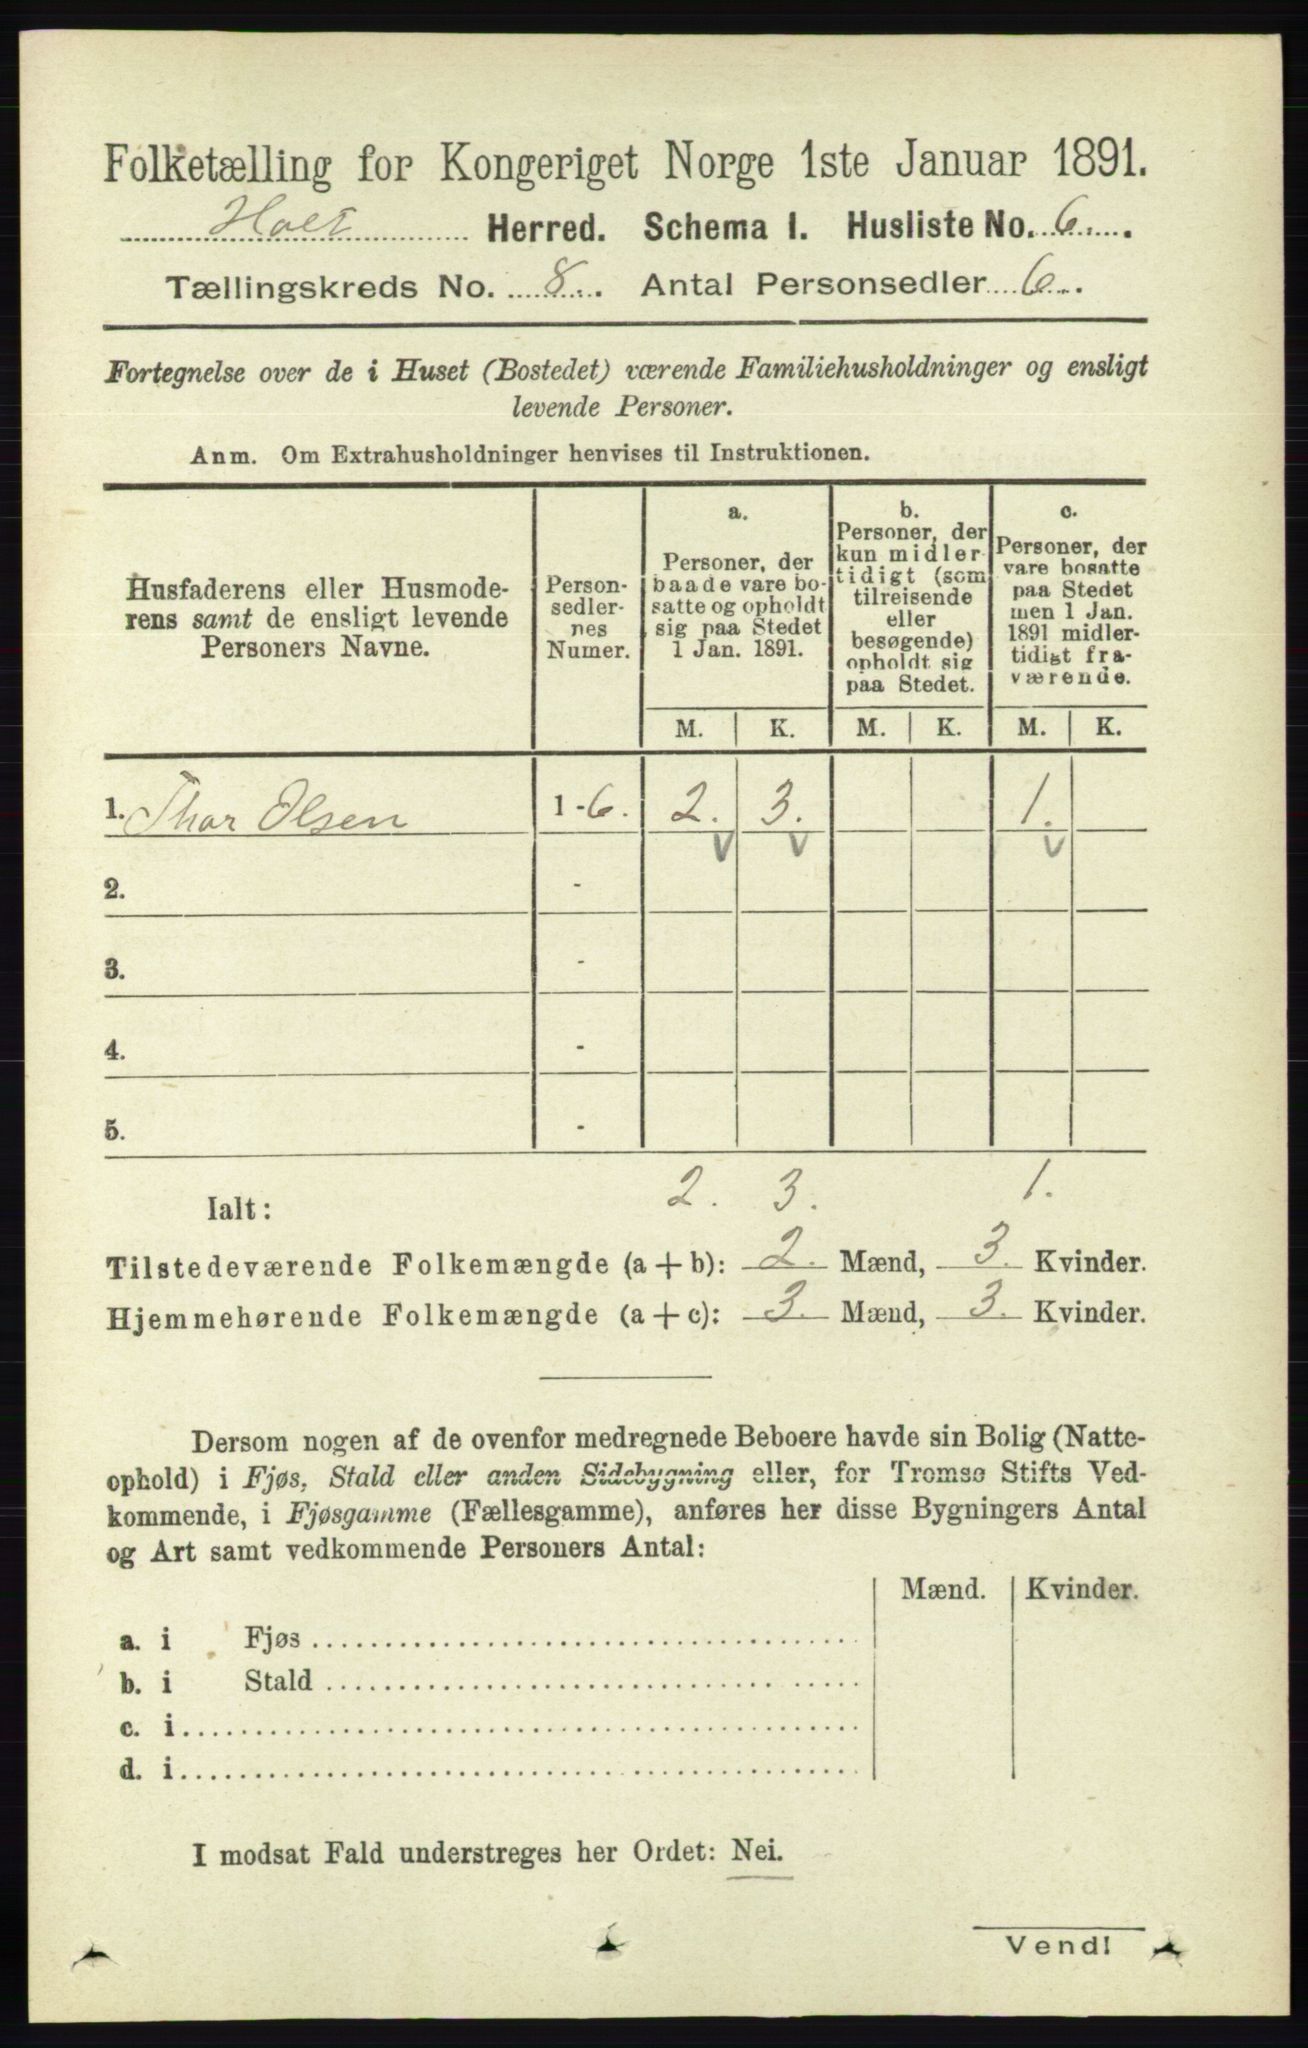 Folketælling for Kongeriget Norge 1ste Januar 1891.
Holt Herred. Schema I. Husliste No. 6.
Tællingskreds No. 8. Antal Personsedler 6.
Fortegnelse over de i Huset (Bostedet) værende Familiehusholdninger og ensligt
levende Personer.
Anm. Om Extrahusholdninger henvises til Instruktionen.
Husfaderens eller Husmode-
rens samt de ensligt levende
Personers Navne.
Person-
sedler-
nes
Numer.
a.
Personer, der
baade vare bo-
satte og opholdt
sig paa Stedet
1 Jan. 1891.
b.
Personer, der
kun midler-
tidigt (som
tilreisende
eller
besøgende)
opholdt sig
paa Stedet.
c.
Personer, der
vare bosatte
paa Stedet
men 1 Jan.
1891 midler-
tidigt fra-
værende.
M. K. M. K. M. K.
1. Thor Olsen 1-6. 2. 3. 1.
v v v
2. -
3. -
4. -
5. -
Ialt: 2. 3. 1.
Tilstedeværende Folkemængde (a+b): 2. Mænd, 3. Kvinder.
Hjemmehørende Folkemængde (a+c): 3. Mænd, 3. Kvinder.
Dersom nogen af de ovenfor medregnede Beboere havde sin Bolig (Natte-
ophold) i Fjøs, Stald eller anden Sidebygning eller, for Tromsø Stifts Ved-
kommende, i Fjøsgamme (Fællesgamme), anføres her disse Bygningers Antal
og Art samt vedkommende Personers Antal:
Mænd. Kvinder.
a. i Fjøs
b. i Stald
c. i
d. i
I modsat Fald understreges her Ordet: Nei.
Vend!